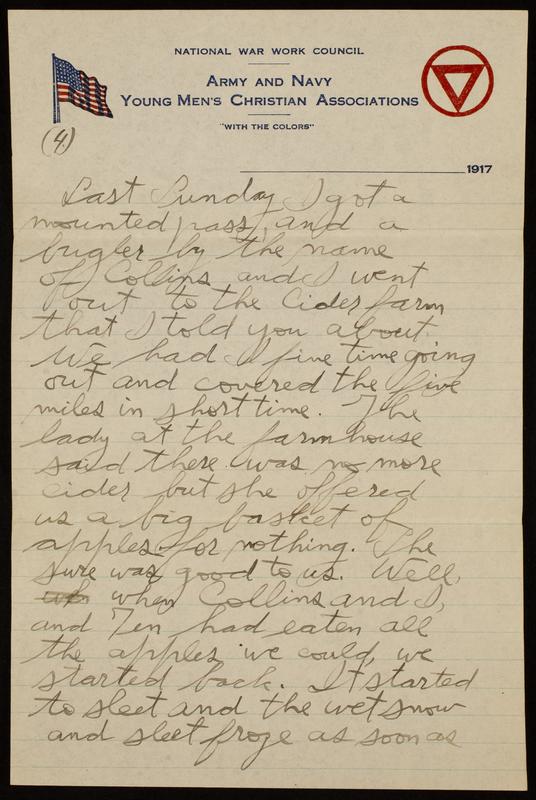 NATIONAL WAR WORK COUNCIL
ARMY AND NAVY
YOUNG MEN'S CHRISTIAN ASSOCIATIONS
"WITH THE COLORS"
(4)
1917
Last Sunday I got a
mounted pass, and a
bugler by the name
of Collins and I went
out to the Cider farm
that I told you about.
We had a fine time going
out and covered the five
miles in short time. The
lady at the farm house
said there was no more
cider but she offered
us a big basket of
apples for nothing. She
sure was good to us. Well,
when Collins and I,
and Ten had eaten all
the apples we could, we
started back. It started
to sleet and the wet snow
and sleet froze as soon as